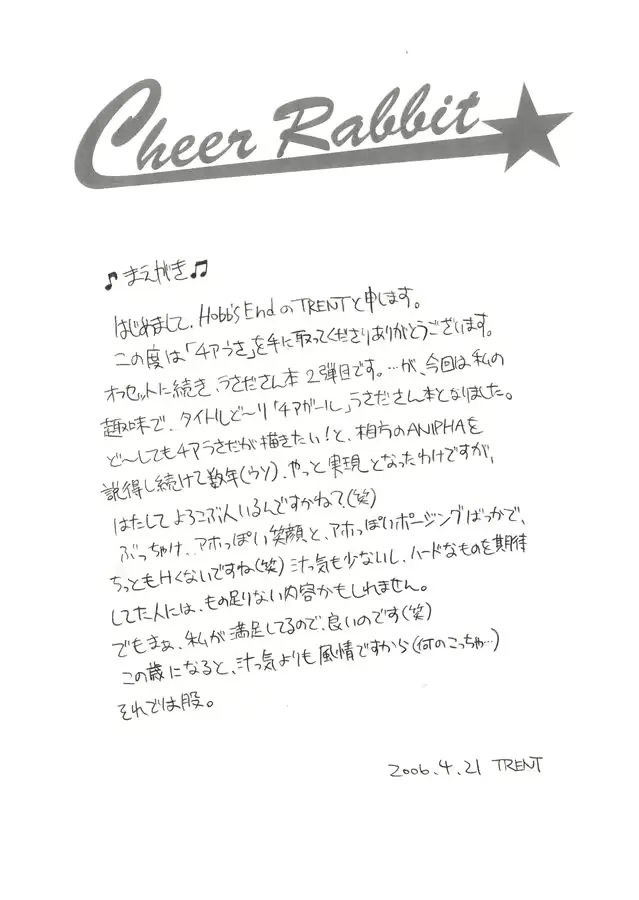 Cheer Rabbit
♪まえがき♫
はじめまして、Hobb's EndのTRENTと申します。
この度は「チアうさ」を手に取ってくださりありがとうございます。
オフセットに続き、うさださん本2弾目です。…が、今回は私の
趣味で、タイトルど〜り「チアガール」うさださん本となりました。
ど〜してもチアうさだが描きたい!と、相方のANIPHAを
説得し続けて数年(ウソ)、やっと実現となったわけですが、
はたしてよろこぶ人いるんですかねて(笑)
ぶっちゃけ、アホっぽい笑顔と、アホっぽいポージングばっかで、
ちっともHくないですね(笑)汁っ気も少ないし、ハードなものを期待
してた人には、もの足りない内容かもしれません。
でもまぁ、私が満足してるので、良いのです(笑)
この歳になると、汁っ気よりも風情ですから(何のこっちゃ…)
それでは股。
2006.4.21 TRENT